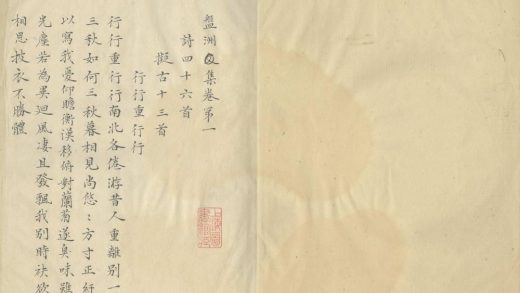 盤洲文集卷第一
詩四十六首
擬古十三首
行行重行行
行行重行行南北各倦游昔人重離別一
三秋如何三秋暮相見尚悠〻方寸正紆
以寫我憂仰瞻衡漢移俯對蘭臭味雖
光塵若為異迴風淒且發飄我別時袂欲
相思披衣不勝體
上海圖書館藏